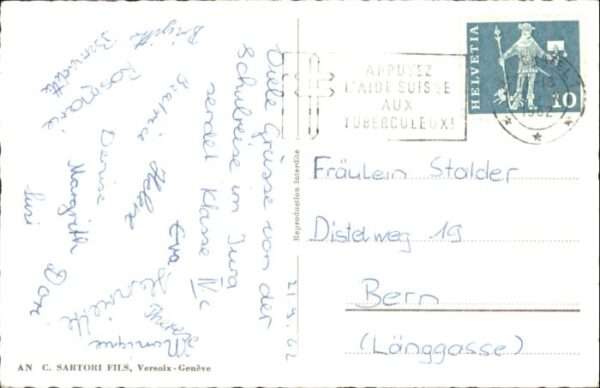 Viele Grüsse von der
Schulreise im Jura
sendet Klasse IVc
21.9.62
Brigitte
Bernadette
Rosmarie
Beatrice
Denise
Helene
Margrith
Eva
Susi
Dori
Henriette
Monique
HELVETIA
10
APPUYEZ
L'AIDE SUISSE
AUX
TUBERCULEUX!
1962
Reproduction Interdite
Fräulein Stolder
Distelweg 19
Bern
(Länggasse)
AN C. SARTORI FILS, Versoix-Genève